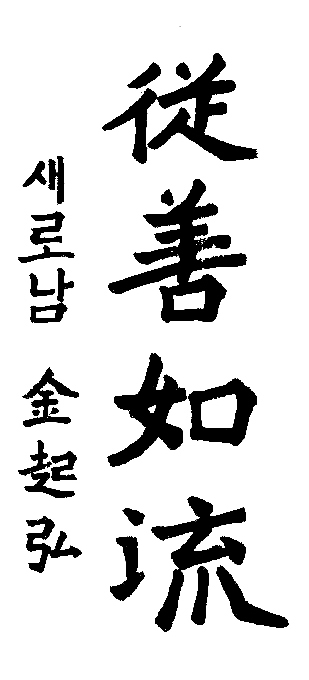 從善如流
새로남 金起弘